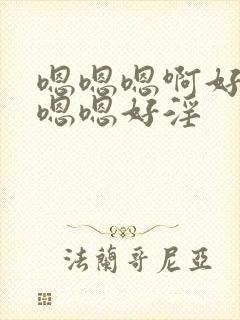 嗯嗯嗯啊好
嗯嗯好淫
法蘭哥尼亞